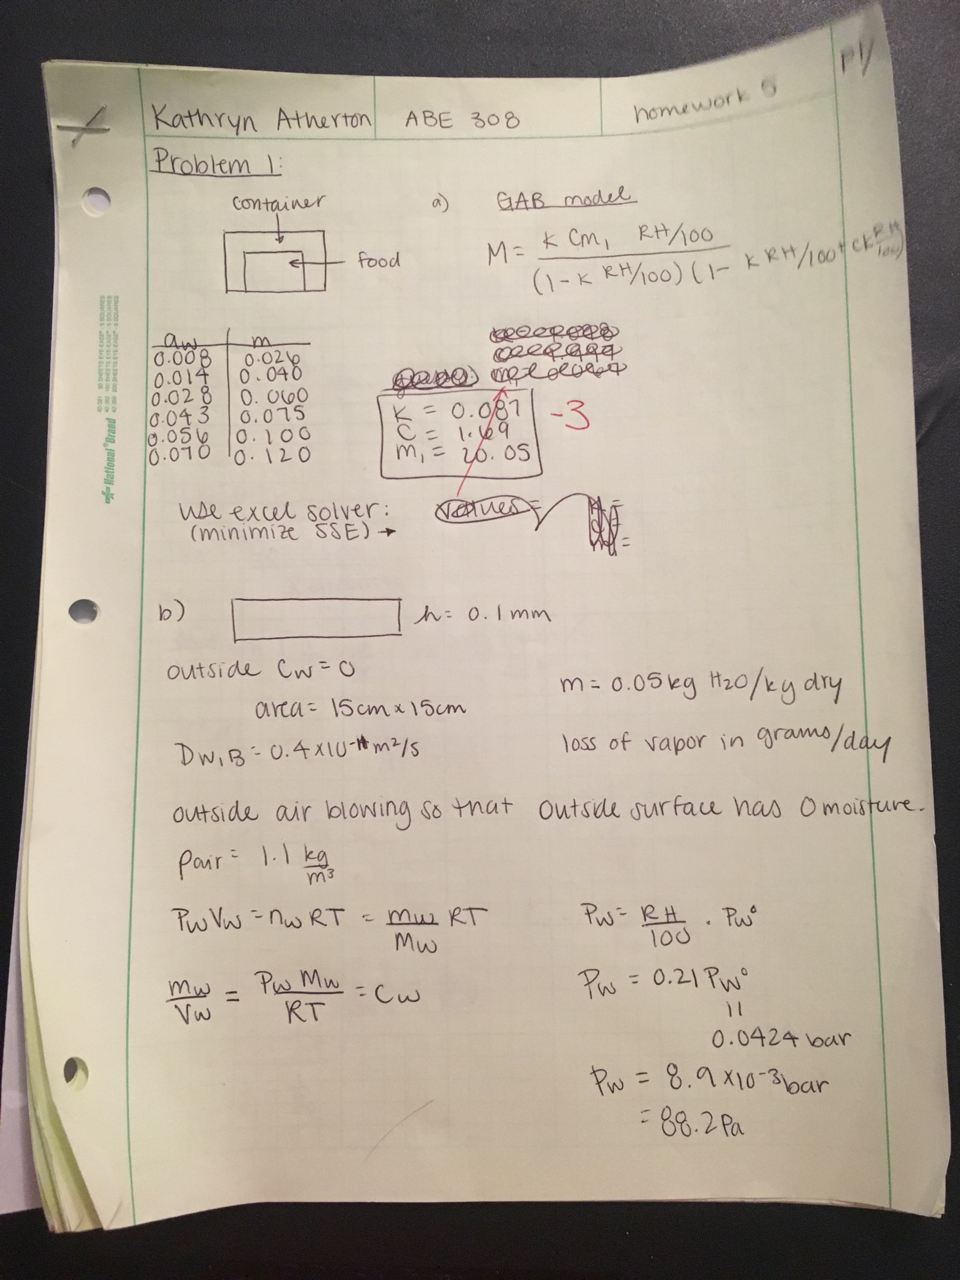 p1/
Kathryn Atherton ABE 308 homework 5
Problem 1:
container
food
a) GAB model
M = k Cm₁ RH/100 / (1-k RH/100)(1- k RH/100 + ck RH/100)
aw m
0.008 0.026
0.014 0.040
0.028 0.060
0.043 0.075
0.056 0.100
0.070 0.120
K = 0.087
C = 1.69
m₁ = 20.05
-3
use excel solver: values =
(minimize SSE) →
National®Brand
b) h = 0.1mm
outside Cw = 0
area = 15cm x 15cm
m = 0.05 kg H2O/kg dry
Dw,B = 0.4 x10⁻¹¹ m²/s
loss of vapor in grams/day
outside air blowing so that outside surface has 0 moisture.
ρair = 1.1 kg/m³
PwVw = nwRT = mw/Mw RT
Pw = RH/100 · Pw°
mw/Vw = PwMw/RT = Cw
Pw = 0.21 Pw°
=
0.0424 bar
Pw = 8.9 x10⁻³ bar
= 88.2 Pa